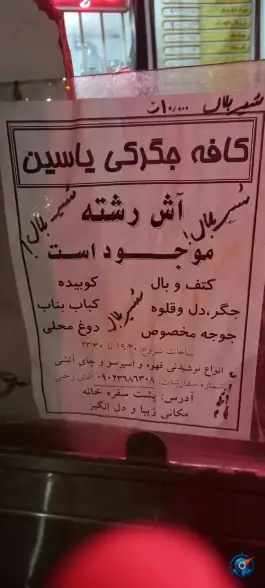 شیر بلال ۱۰,۰۰۰ت
کافه جگرکی یاسین
آش رشته
شیر بلال!
شیر بلال!
موجود است
کتف و بال
کوبیده
جگر،دل وقلوه
کباب بناب
شیر بلال
جوجه مخصوص
دوغ محلی
ساعات شروع: ۱۹:۳۰ تا ۲۳:۳۰
انواع نوشیدنی قهوه و اسپرسو و چای آتشی
شماره سفارشات: ۰۹۰۲۳۶۸۶۳۰۸ آقای رجبی
آدرس: پشت سفره خانه
مکانی زیبا و دل انگیز